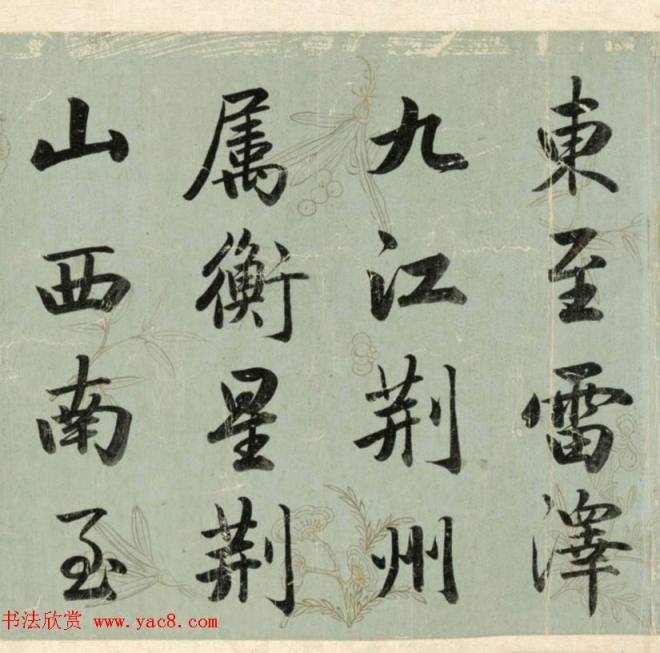 東至雷澤
九江荆州
属衡星荆
山西南至
书法欣赏 www.yac8.com